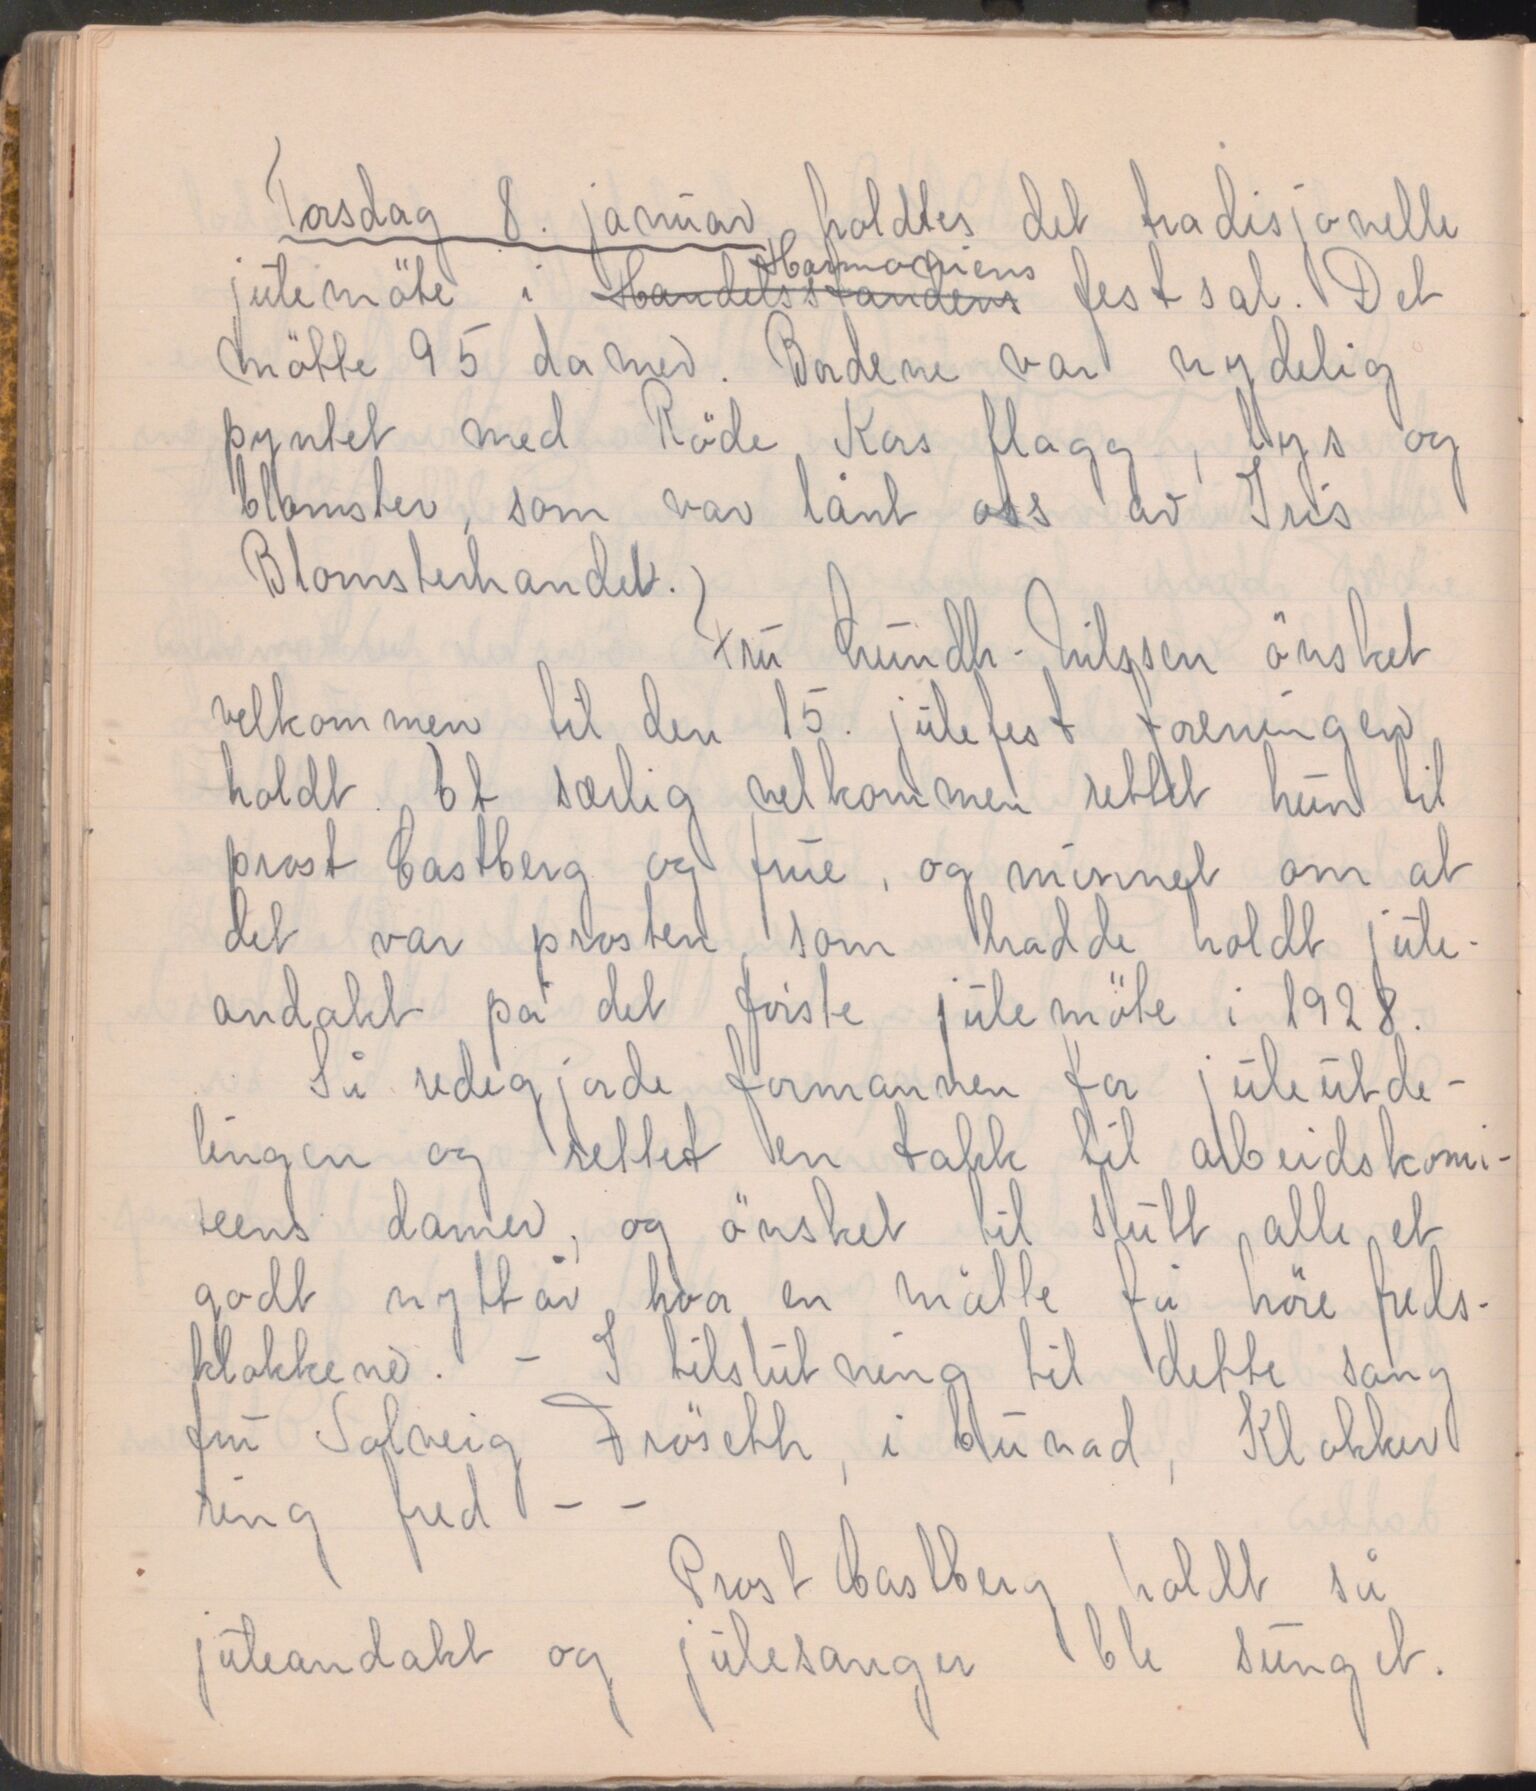 Torsdag 8. januar holdtes det tradisjonelle
Harmoniens
julemöte i Handelsstandens festsal. Det
mötte 95 damer. Bordene var nydelig
pyntet med Röde Kors flagg, lys og
blomster, som var lånt oss av Iris
Blomsterhandel.
Fru Lundh-Nilssen önsket
velkommen til den 15. julefest foreningen
holdt. Et særlig velkommen rettet hun til
prost Castberg og frue, og minnet om at
det var prosten som hadde holdt jule-
andakt på det förste julemöte i 1928.
Så redegjorde formannen for juleutde-
lingen og rettet en takk til arbeidskomi-
teens damer, og önsket til slutt alle et
godt nyttår hvor en måtte få höre freds-
klokkene. - I tilslutning til dette sang
fru Solveig Fröseth, i bunad, Klokker
ring fred - -
Prost Castberg holdt så
juleandakt og julesanger ble sunget.